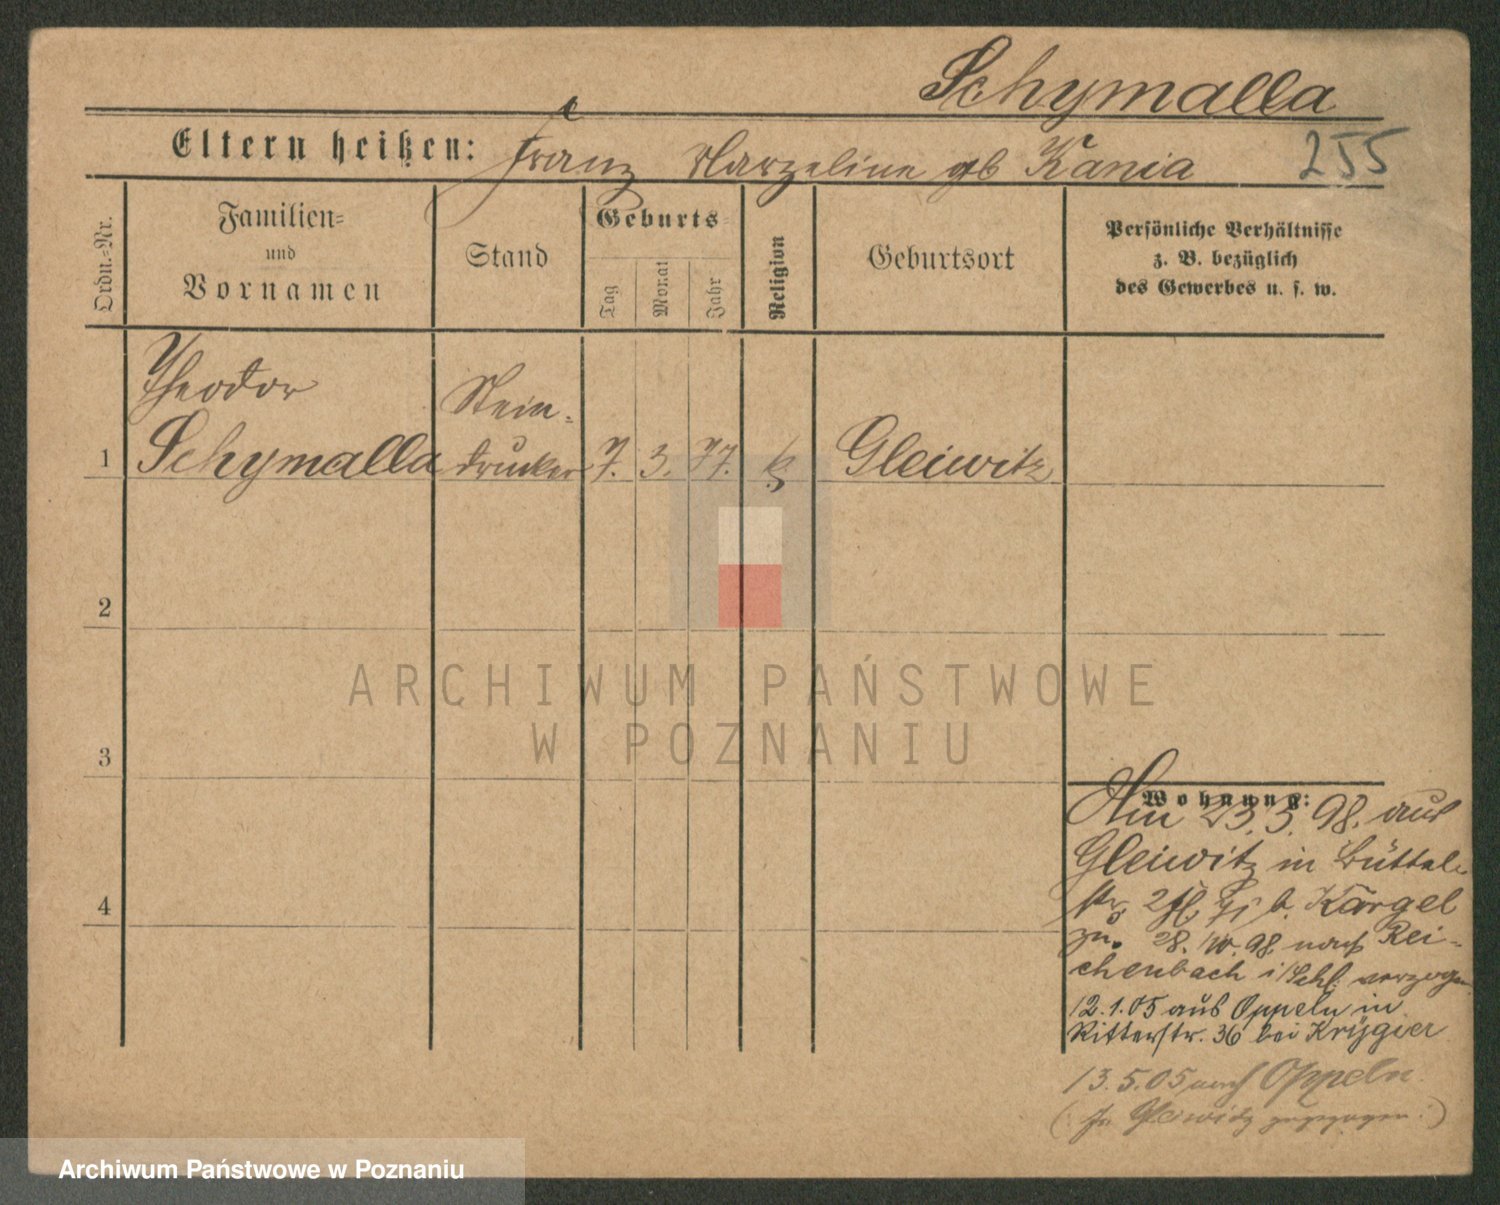 Schymalla
Eltern heißen: Franz Marzeline gb Kania 255
Ordn.-Nr.
Familien-
und
Vornamen
Stand
Geburts-
Tag
Monat
Jahr
Religion
Geburtsort
Persönliche Verhältnisse
z. B. bezüglich
des Gewerbes u. s. w.
Theodor Stein-
1 Schymalla drucker 7. 3. 77. k Gleiwitz
2
ARCHIWUM PAŃSTWOWE
W POZNANIU
3
Wohnung:
Am 23.3.98. aus
Gleiwitz in Büttel-
str. b. Kargel
zu. 28. 98 nach Rei-
chenbach i/Schl. verzogen
4
12.1.05 aus Oppeln in
Ritterstr. 36 bei Krygier
13.5.05 nach Oppeln
(In Gleiwitz zugezogen.)
Archiwum Państwowe w Poznaniu